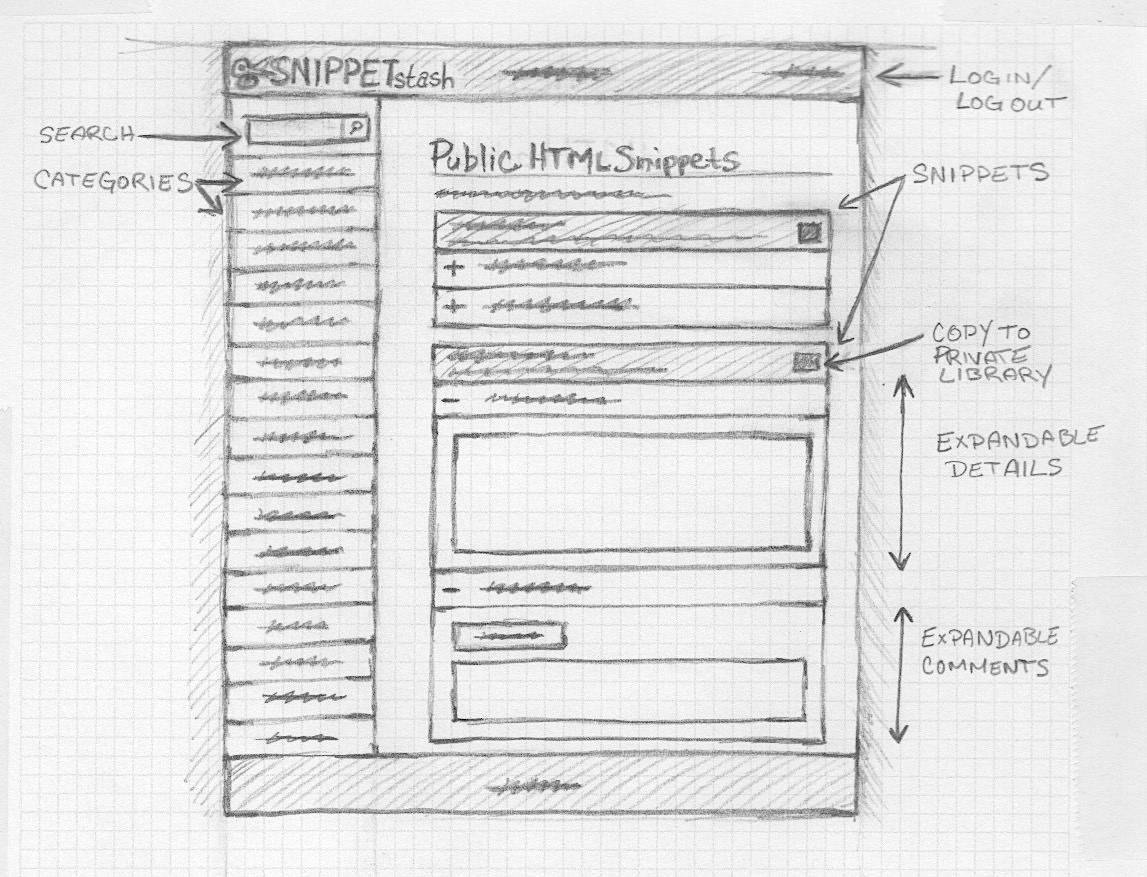 SNIPPETstash
LOGIN/
LOG OUT
SEARCH
CATEGORIES
Public HTML Snippets
SNIPPETS
COPY TO
PRIVATE
LIBRARY
EXPANDABLE
DETAILS
EXPANDABLE
COMMENTS